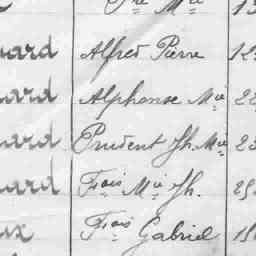 Mie
uard Alfred Pierre 12
uard Alphonse Mie 22
uard Prudent Jh. Mie 23
uard Fois Mie Jh. 29
ux Fois Gabriel 15